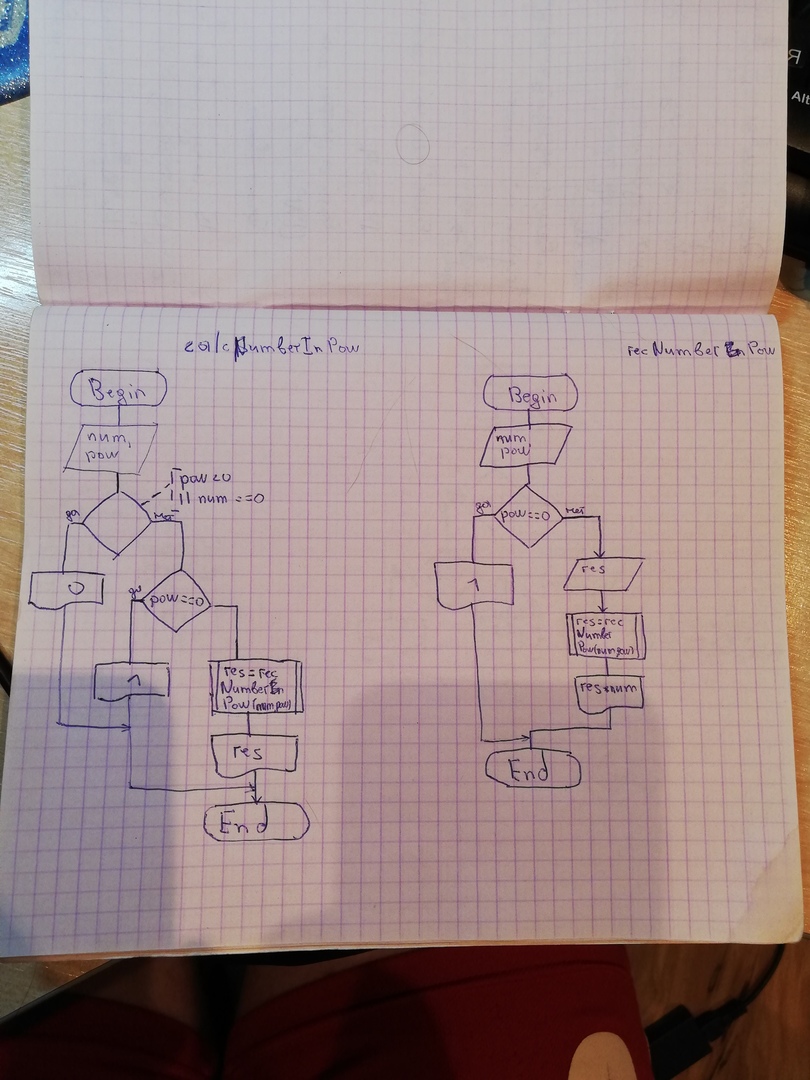 calcNumberInPow
Begin
num,
pow
pow<0
|| num ==0
да
нет
0
да
pow==0
1
res=rec
NumberIn
Pow(num,pow)
res
End
recNumberInPow
Begin
num
pow
да
pow==0
нет
1
res
res=rec
Number
Pow(num,pow)
res*num
End
Я
Alt